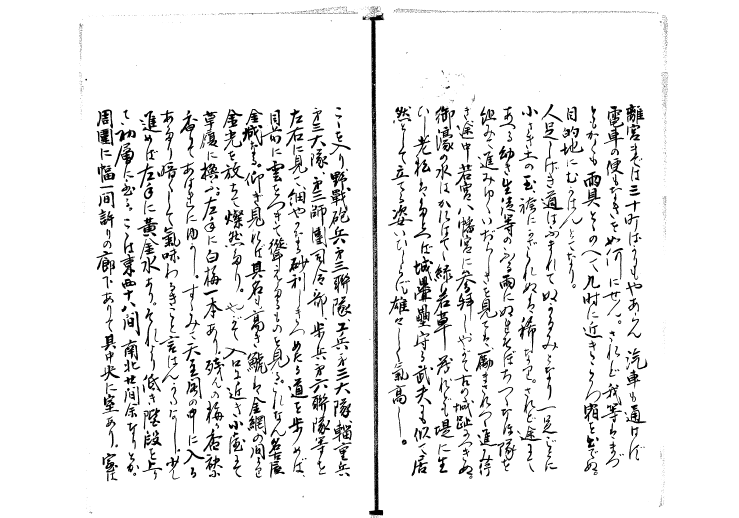 離宮までは三十町ばかりもやあらん 汽車も通はず
電車の便もなきをめ何にせん。されど我等はまづ
ともかくも雨具をそのへて九時に近きころ宿を出でぬ
目的地にむかはんとてなり。
人足しげき道はふまれてぬかるみとなり一足ごとに
小さき土の玉裾にかゞれぬは稀なり。されど途すがら
あへる幼き生徒等のふる雨にぬれそぼちつゝなほ隊を
組みて進みゆくいぢらしきを見ては、励まされつゝ進み行
き途中若宮八幡宮に参拝しやがて古の城趾につきぬ。
御濠の水はかれはてゝ緑の若草 茂れども堤に生
いし老松は
城壘 守る武夫にも似て居
然として立てる姿いひしらず雄々しく気高し。
こゝを入り野戦砲兵第三聯隊、工兵第三大隊、輜重兵
第三大隊、第三師団司令部、歩兵第六聯隊等を
左右に見て細やかなる砂利しきつめたる道を歩めば、
目前に雲をつきて聳ゆるものを見る。これなん名古屋
金城なる。仰ぎ見れば其名も高き鯱は金網の間より
金光を放ちて燦然たり。やがて入口に近き小屋にて
草履に換ふ。左手に白梅一本あり、残んの梅が香袂に
香りてあはれにゆかし。すゝみて天主閣の中に入る
あたり暗くして気味わるきこと言はん方なし。少し
進めば左手に黄金水あり。それより低き階段を上り
て初層に至る。こは東西十八間 南北廿間余なりとか。
周囲に幅一間許りの廊下ありて其中央に室あり、室は